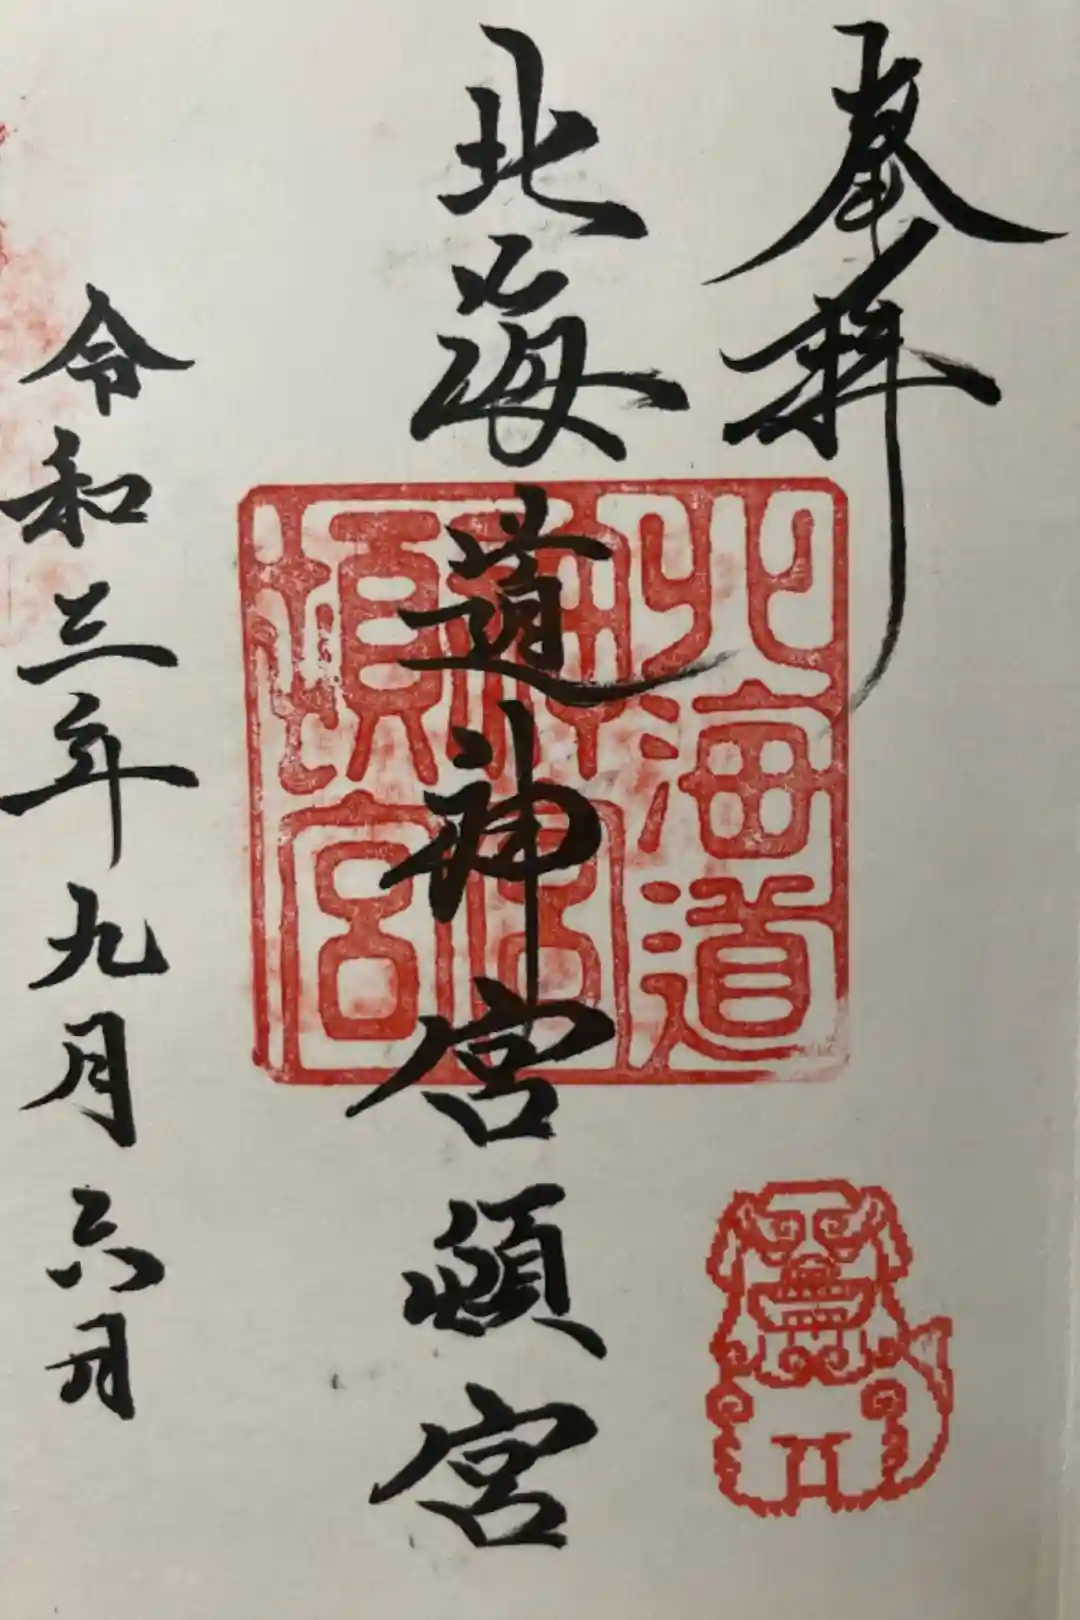 奉拝
北海道神宮頓宮
令和三年九月六日
北海道
神宮
頓宮